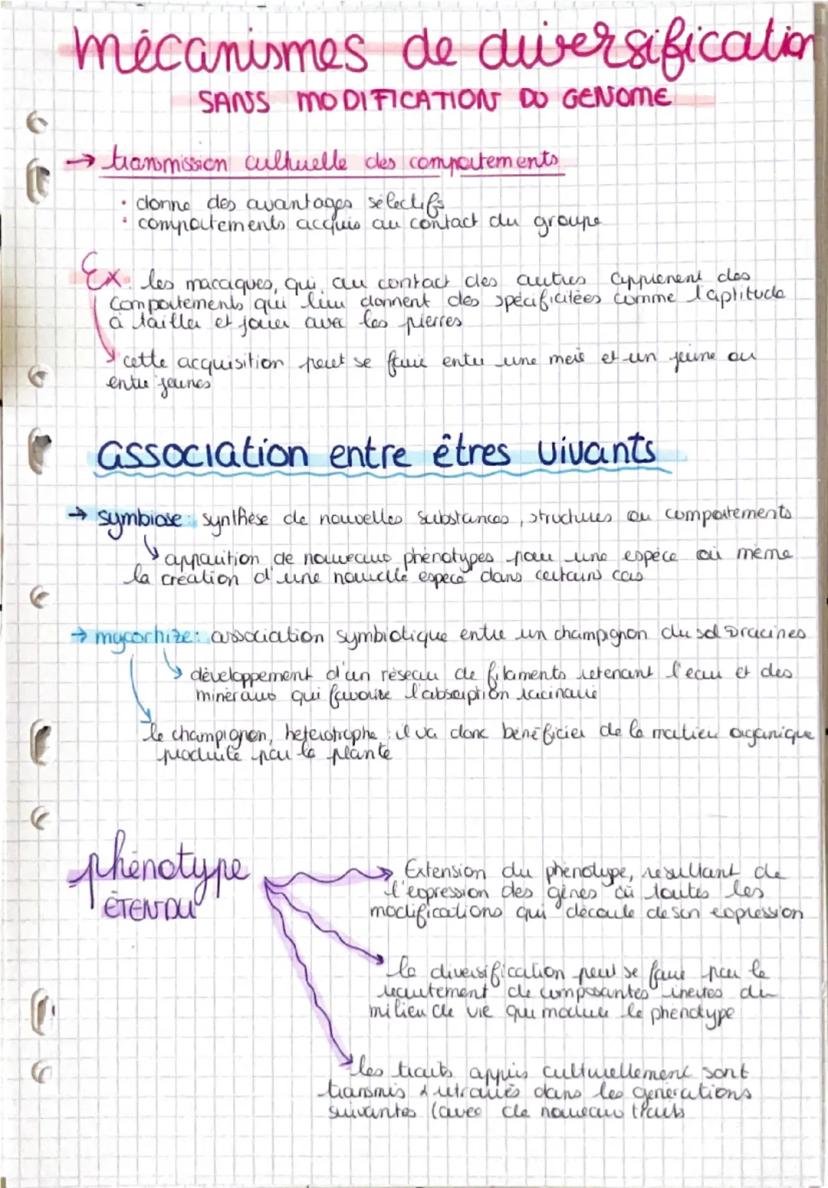 mécanismes de diversification
SANS MODIFICATION DU GENOME
→ transmission culturelle des comportements
• donne des avantages sélectifs
• comportements acquis au contact du groupe
Ex : les macaques, qui, au contact des autres apprenent des
comportements qui leur donnent des spécificitées comme l'aptitude
à tailler et jouer avec les pierres
cette acquisition peut se faire entre une mère et un jeune ou
entre jeunes
association entre êtres vivants
→ symbiose : synthèse de nouvelles substances, structures ou comportements
apparition de nouveaux phénotypes pour une espèce où même
la création d'une nouvelle espèce dans certains cas
→ mycorhize : association symbiotique entre un champignon du sol racines
développement d'un réseau de filaments retenant l'eau et des
minéraux qui favorise l'absorption racinaire
le champignon, hétérotrophe : il va donc bénéficier de la matière organique
produite par la plante
phénotype
ÉTENDU
Extension du phénotype, résultant de
l'expression des gènes où toutes les
modifications qui découle de son expression
la diversification peut se faire par le
recrutement de composantes inertes du
milieu de vie qui module le phénotype
les traits appris culturellement sont
transmis dans les générations
suivantes (avec de nouveau traits